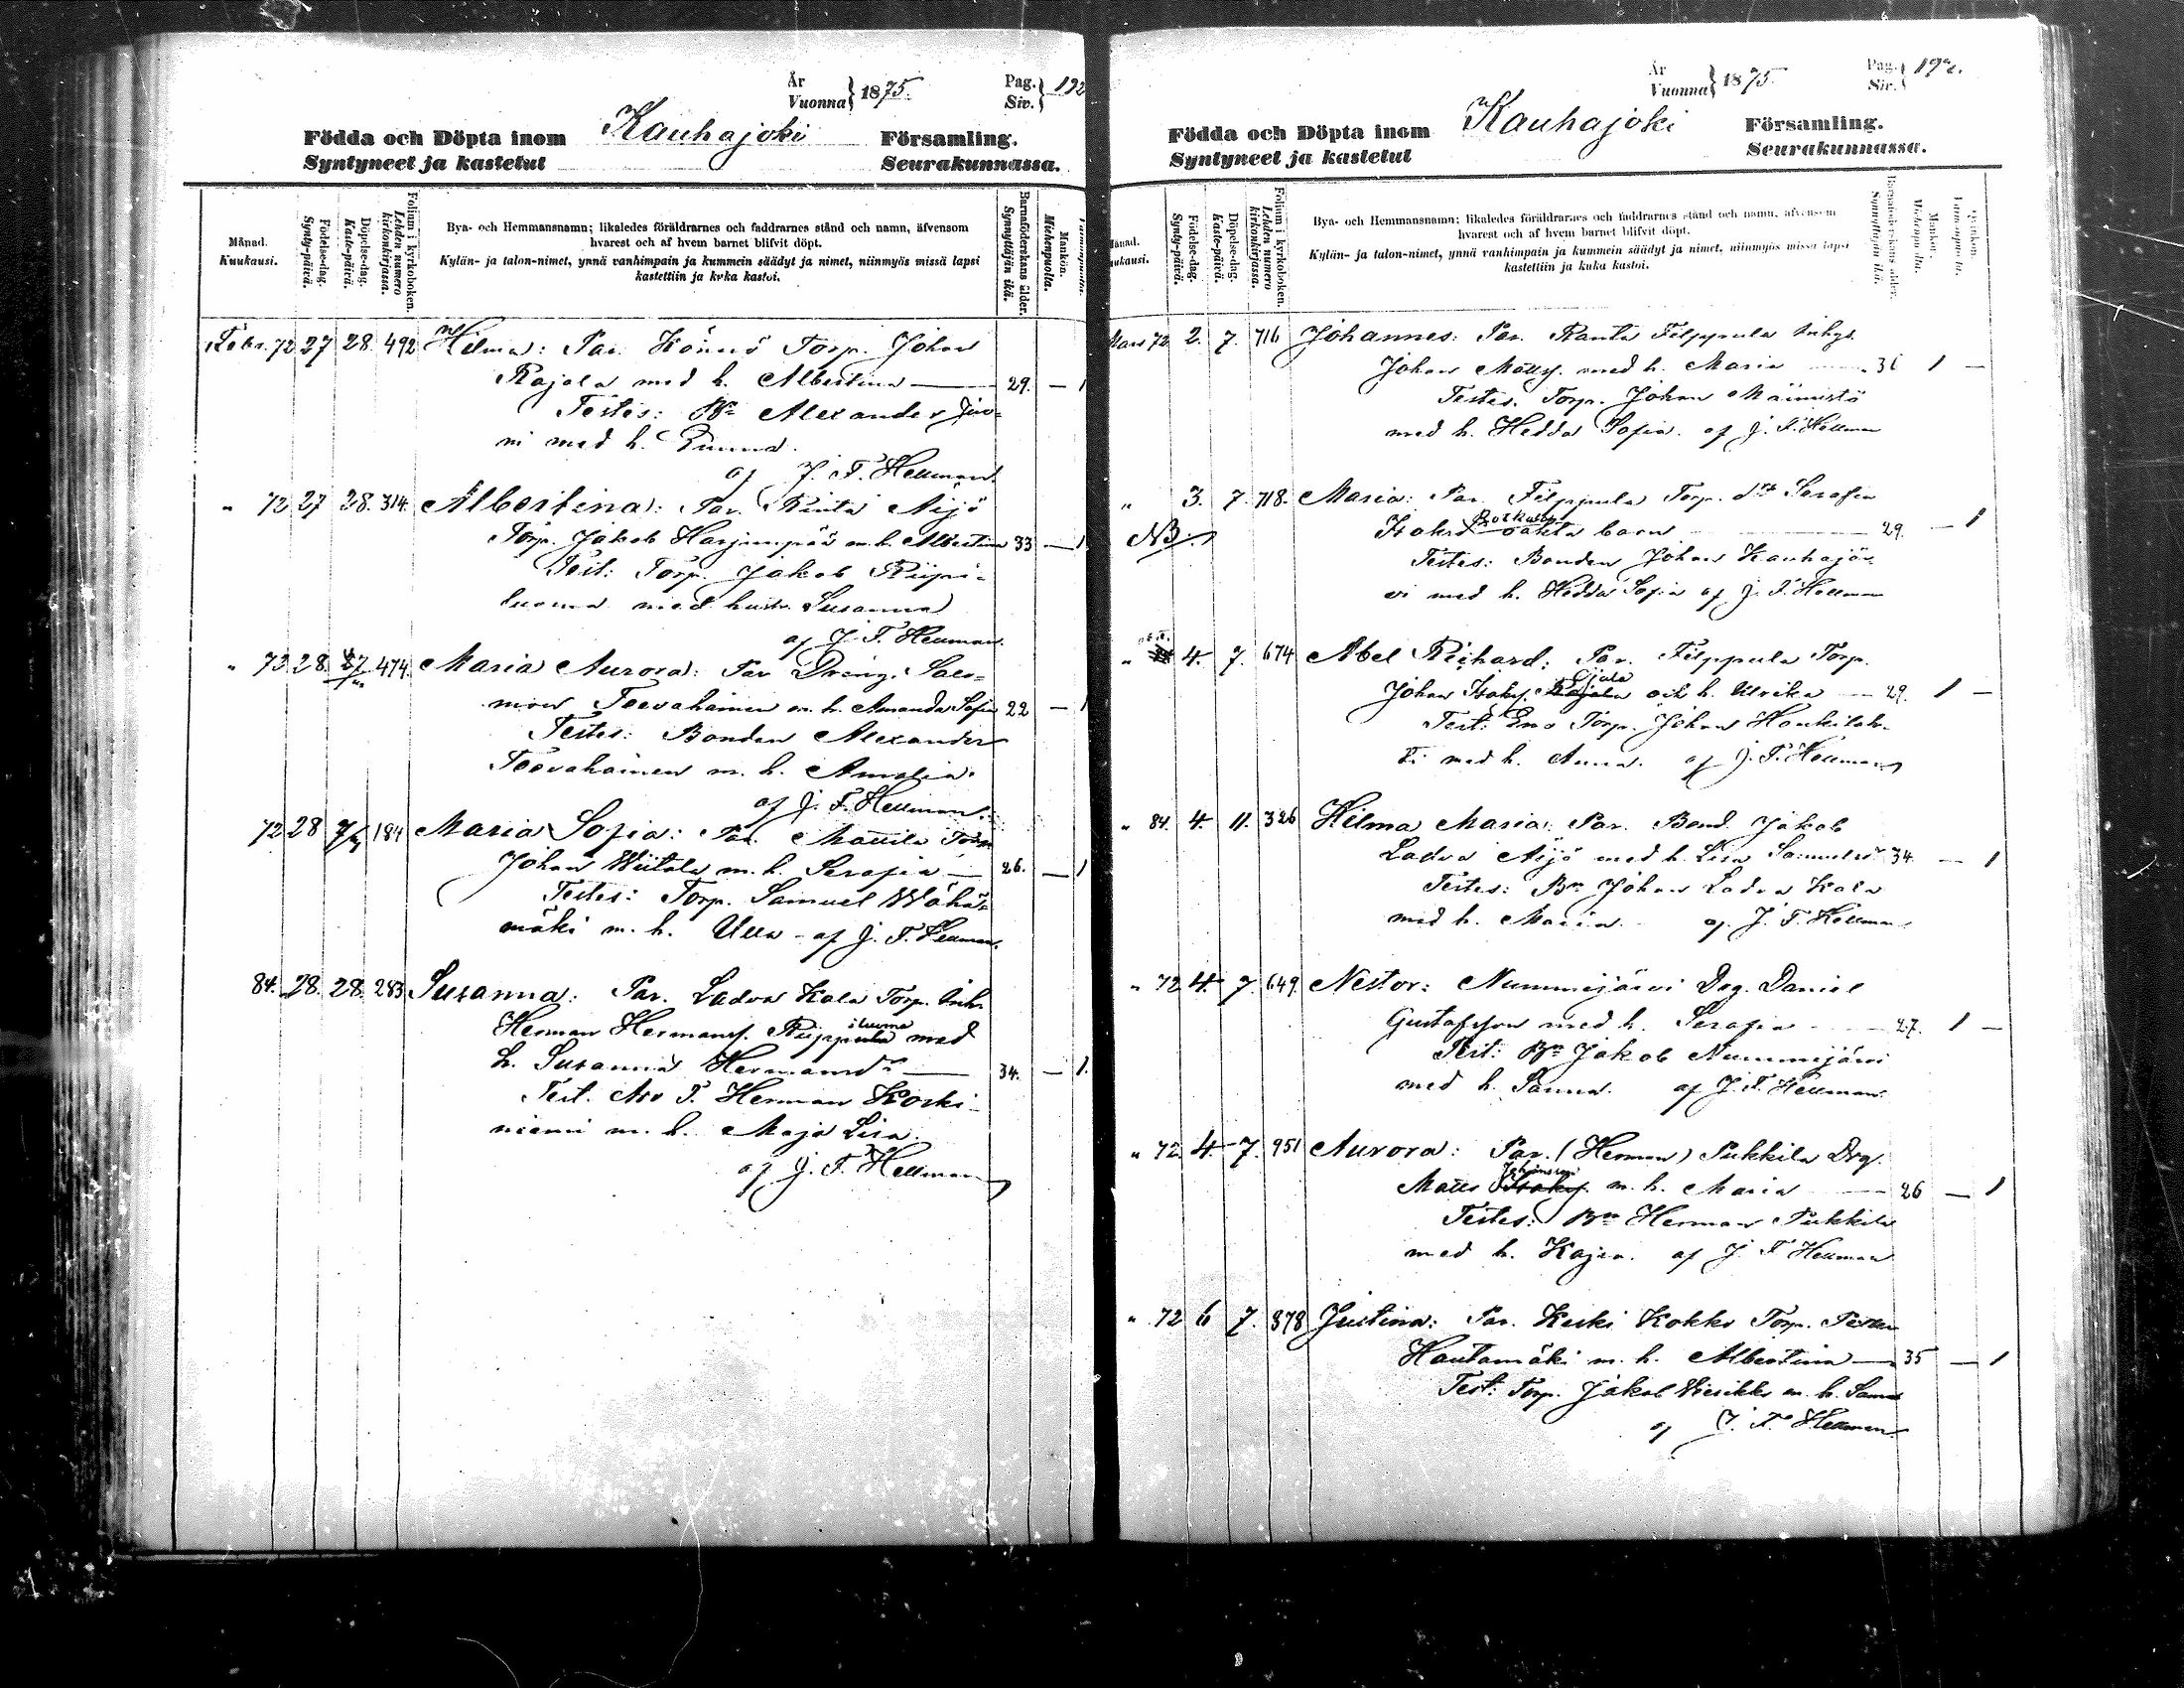 År
Vuonna } 1875.
Pag.
Siv. } 192
Födda och Döpta inom Kauhajoki Församling.
Syntyneet ja kastetut Seurakunnassa.
Månad.
Kuukausi.
Födelse-dag.
Synty-päivä.
Döpelse-dag.
Kaste-päivä.
Folium i kyrkoboken.
Lehden numero kirkonkirjassa.
Bya- och Hemmansnamn; likaledes föräldrarnes och faddrarnes stånd och namn, äfvensom
hvarest och af hvem barnet blifvit döpt.
Kylän- ja talon-nimet, ynnä vanhimpain ja kummein säädyt ja nimet, niinmyös missä lapsi
kastettiin ja kuka kastoi.
Barnaföderskans ålder.
Synnyttäjän ikä.
Mankön.
Miehenpuolta.
Febr. 72 27 28. 492 Hilma: Par. Könnö Torp. Johan
Rajala med h. Albertina — 29. — 1
Testes: Bn Alexander
ni med h.
af J. F. Hellman.
" 72 27 28. 314. Albertina: Par. Rinta Äijö
Torp. Jakob Harjunpää m. h. Albertina 33 — 1
Test: Torp. Jakob Riipi-
luoma med hustr. Susanna
af J. F. Hellman.
" 73 28. 474. Maria Aurora: Par Dräng. Salo-
mon Teevahainen m. h. Amanda Sofia 22 — 1
Testes: Bonden Alexander
Teevahainen m. h. Amalia.
af J. F. Hellman.
72 28 184 Maria Sofia: Par. Mattila Torp
Johan Wiitala m. h. Serafia — 26. — 1
Testes: Torp. Samuel Wähä-
mäki m. h. Ulla - af J. F. Hellman.
84. 28. 28. 283 Susanna: Par. Ladva Kala Torp. Inh.
Herman Hermanss. Riippula iluoma med
h. Susanna Hermansdr — 34. — 1.
Test. T. Herman Koski-
niemi m. h. Maja Lisa.
af J. F. Hellman
År
Vuonna } 1875.
Pag.
Siv. } 192.
Födda och Döpta inom Kauhajoki Församling.
Syntyneet ja kastetut Seurakunnassa.
Månad.
Kuukausi.
Födelse-dag.
Synty-päivä.
Döpelse-dag.
Kaste-päivä.
Folium i kyrkoboken.
Lehden numero kirkonkirjassa.
Bya- och Hemmansnamn; likaledes föräldrarnes och faddrarnes stånd och namn, äfvensom
hvarest och af hvem barnet blifvit döpt.
Kylän- ja talon-nimet, ynnä vanhimpain ja kummein säädyt ja nimet, niinmyös missä lapsi
kastettiin ja kuka kastoi.
Barnaföderskans ålder.
Synnyttäjän ikä.
Mankön.
Miehenpuolta.
Mars 72 2. 7. 716 Johannes: Par. Ranta Filppula Inhys
Johan Matts. med h. Maria — 36 1 —
Testes. Torp. Johan Mäimistö
med h. Hedda Sofia. af J. F. Hellman
" 3. 7. 718. Maria: Par. Filppula Torp. dtr Serafia
NB. oäkta barn 29. — 1
Testes: Bonden Johan Kauhajär-
vi med h. Hedda Sofia af J. F. Hellman
" 4. 7. 674 Abel Richard: Par. Filppula Torp.
Johan Isaks. Rajala Ojala och h. Ulrika — 29. 1 —
Test: Torp. Johan Haukilah-
ti med h. Anna. af J. F. Hellman
" 84. 4. 11. 326 Hilma Maria: Par. Bond. Jakob
Ladva Äijö med h. Lisa Samuelsdr 34. — 1
Testes: Bn Johan Ladva Kala
med h. Maria. af J. F. Hellman
" 72 4. 7. 649. Nestor: Nummijärvi Drg. Daniel
Gustafsson med h. Serafia — 27. 1 —
Test: Bn Jakob Nummijärvi
med h. Sanna. af J. F. Hellman.
" 72. 4. 7. 951 Aurora: Par. (Herman) Pukkila Drg.
Matts Isaks. Johansson m. h. Maria — 26 — 1
Testes: Bn Herman Pukkila
med h. Kajsa. af J. F. Hellman
" 72 6 7. 878 Justina: Par. Keski Kokko Torp.
Hautamäki m. h. Albertina — 35 — 1
Test: Torp. Jakob m. h. Sanna
af J. F. Hellman.